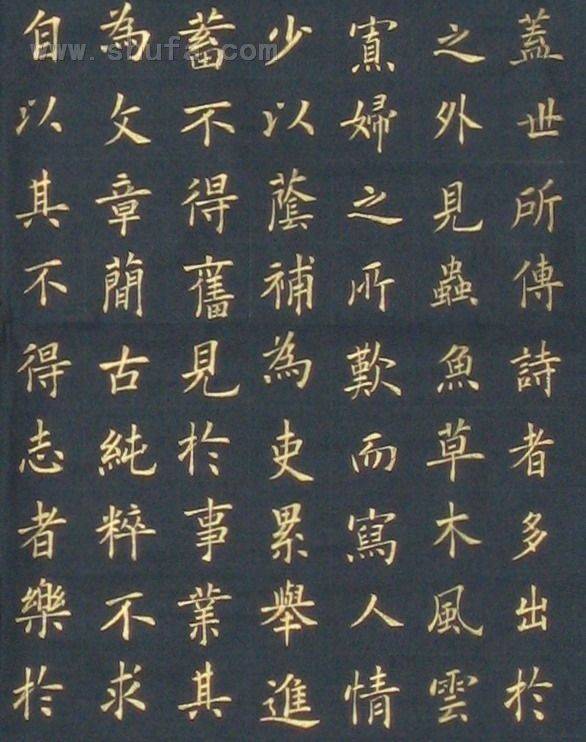 蓋世所傳詩者多出於
之外見蟲魚草木風雲
寡婦之所歎而寫人情
少以蔭補為吏累舉進
蓄不得奮見於事業其
為文章簡古純粹不求
自以其不得志者樂於
www.shufa.com